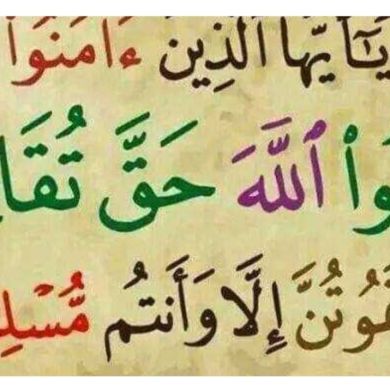 يَٰٓأَيُّهَا ٱلَّذِينَ ءَامَنُوا
وا۟ ٱللَّهَ حَقَّ تُقَا
مُوتُنَّ إِلَّا وَأَنتُم مُّسْلِ